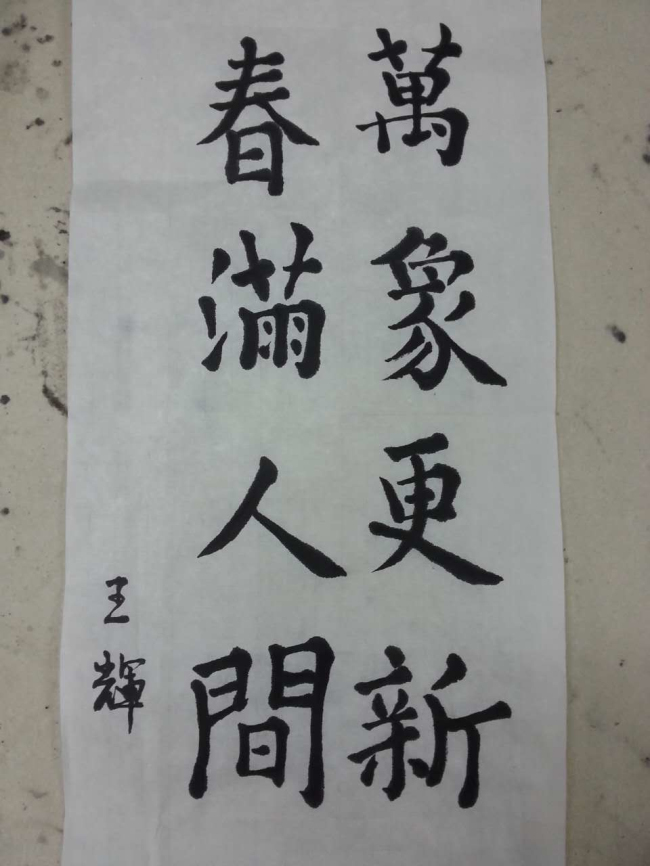 萬象更新
春滿人間
王輝